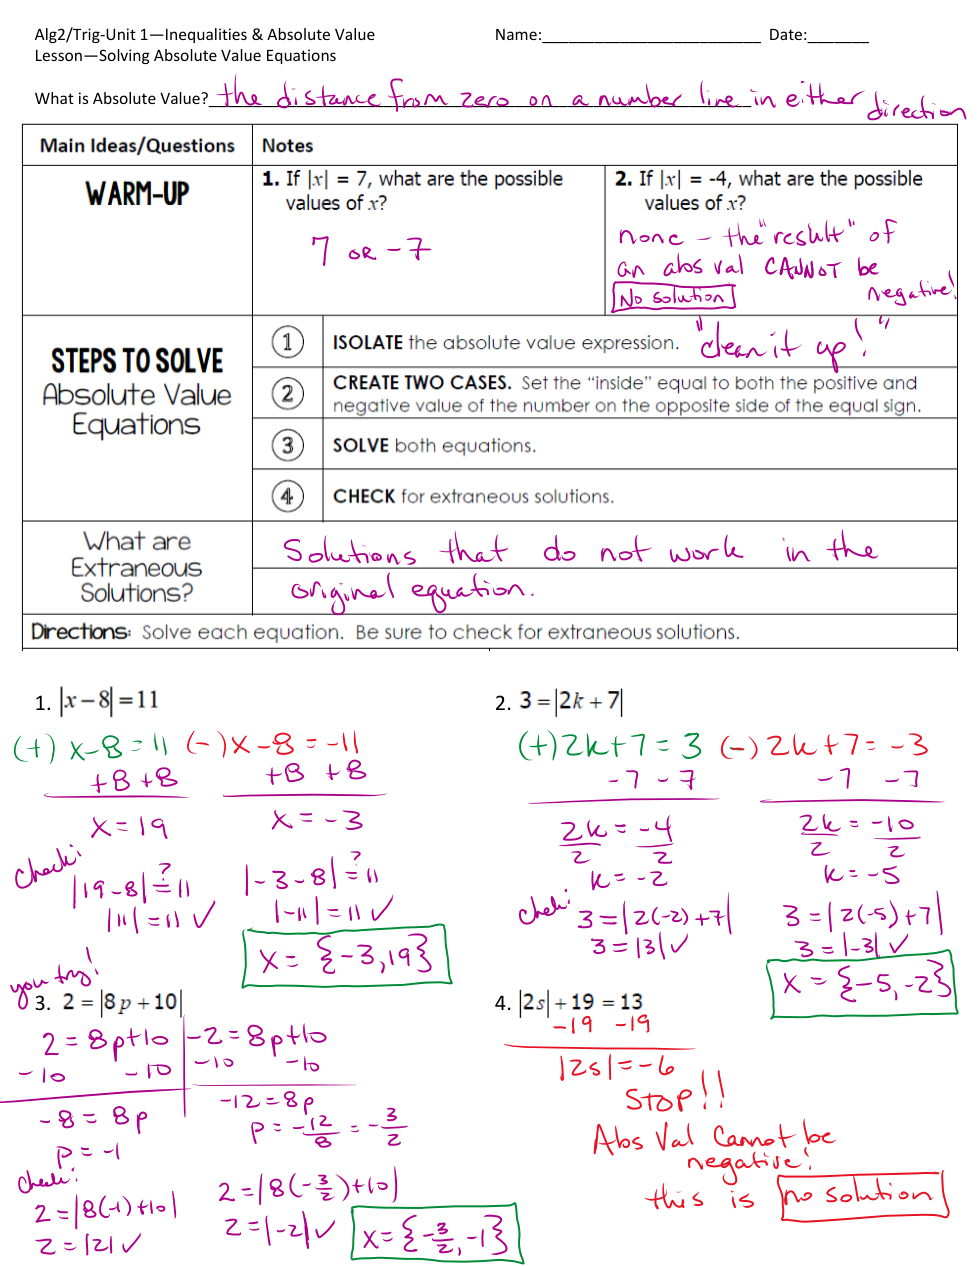 Alg2/Trig-Unit 1—Inequalities & Absolute Value Name:__________________________ Date:_______
Lesson—Solving Absolute Value Equations
What is Absolute Value? the distance from zero on a number line in either direction
Main Ideas/Questions Notes
WARM-UP
1. If |x| = 7, what are the possible
values of x?
7 OR -7
2. If |x| = -4, what are the possible
values of x?
none - the "result" of
an abs val CANNOT be
negative!
No solution
STEPS TO SOLVE
Absolute Value
Equations
1 ISOLATE the absolute value expression. "clean it up!"
2 CREATE TWO CASES. Set the "inside" equal to both the positive and
negative value of the number on the opposite side of the equal sign.
3 SOLVE both equations.
4 CHECK for extraneous solutions.
What are
Extraneous
Solutions?
Solutions that do not work in the
original equation.
Directions: Solve each equation. Be sure to check for extraneous solutions.
1. |x-8|=11
(+) x-8=11 (-) x-8=-11
+8 +8 +8 +8
x=19 x=-3
check:
|19-8|≟11 |-3-8|≟11
|11|=11 ✓ |-11|=11 ✓
x={-3,19}
2. 3=|2k+7|
(+) 2k+7=3 (-) 2k+7=-3
-7 -7 -7 -7
2k=-4 2k=-10
2 2 2 2
k=-2 k=-5
check:
3=|2(-2)+7| 3=|2(-5)+7|
3=|3| ✓ 3=|-3| ✓
x={-5,-2}
you try!
3. 2=|8p+10|
2=8p+10 -2=8p+10
-10 -10 -10 -10
-8=8p -12=8p
p=-1 p=-12/8=-3/2
check:
2=|8(-1)+10| 2=|8(-3/2)+10|
2=|2| ✓ 2=|-2| ✓
x={-3/2,-1}
4. |2s|+19=13
-19 -19
|2s|=-6
STOP!!
Abs Val Cannot be
negative!
this is no solution